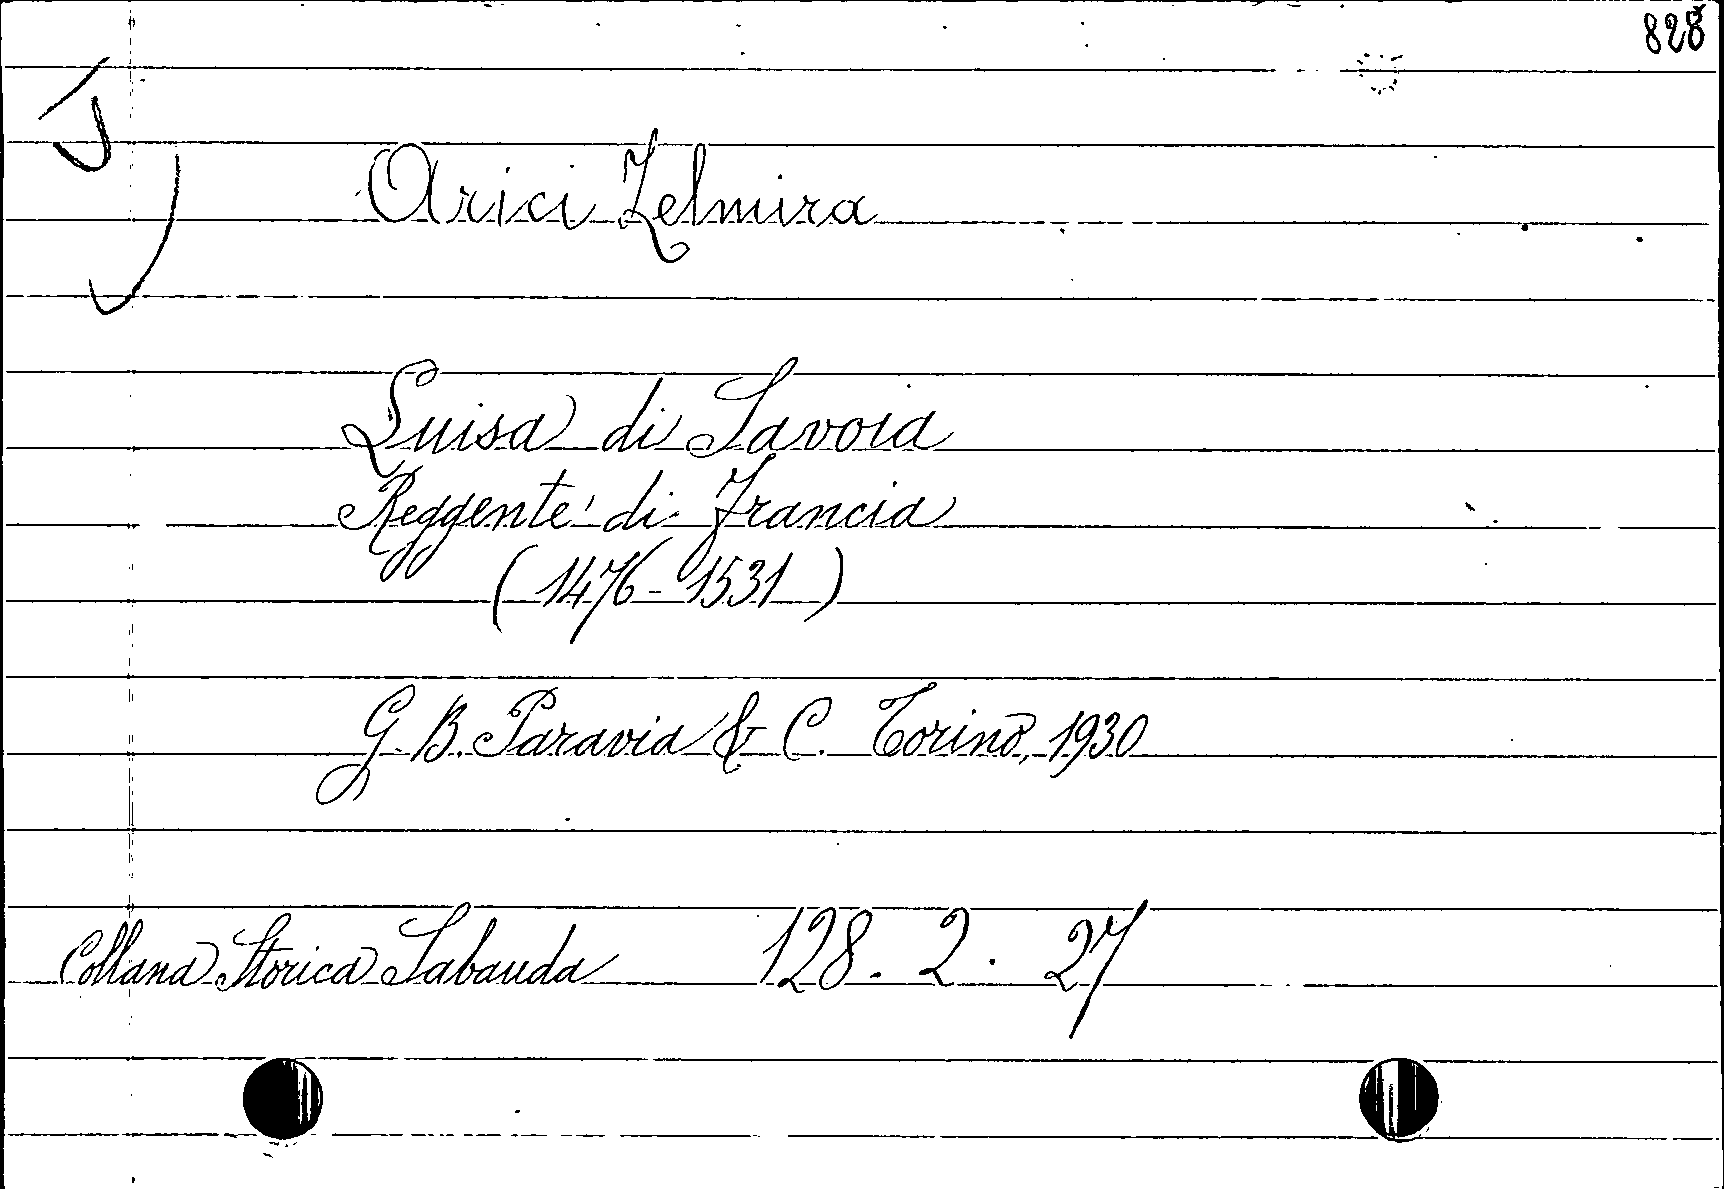 828
Arici Zelmira
Luisa di Savoia
Reggente di Francia
(1476-1531)
G. B. Paravia & C. Torino, 1930
Collana Storica Sabauda 128. 2. 27